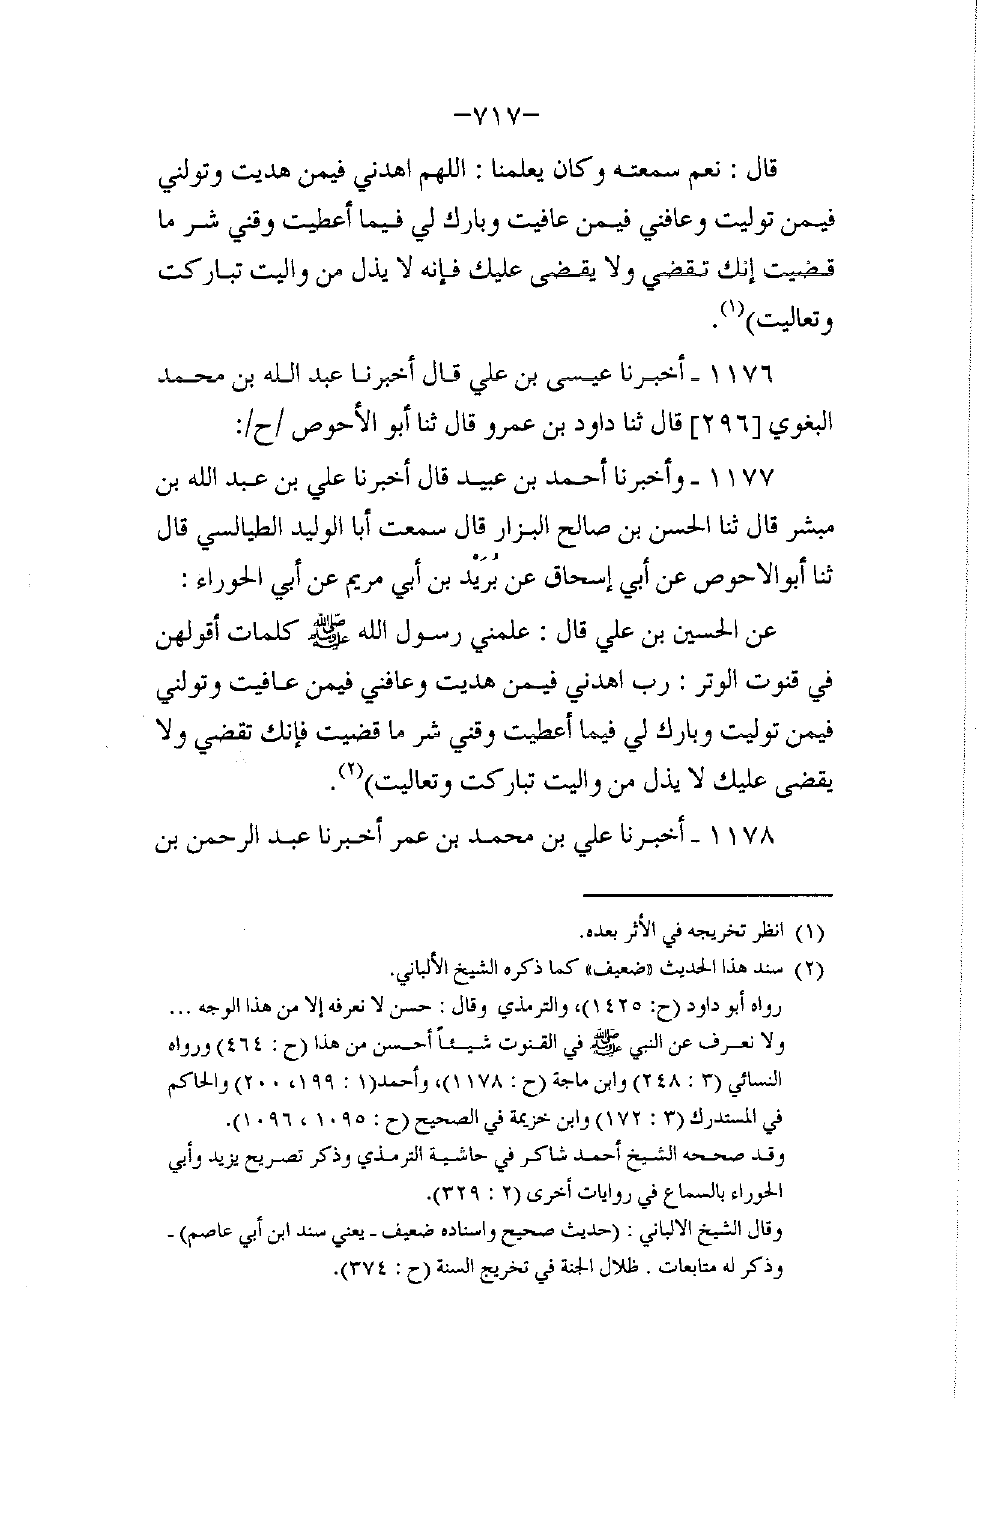 -٧١٧-
قال : نعم سمعته وكان يعلمنا : اللهم اهدني فيمن هديت وتولني
فيمن توليت وعافني فيمن عافيت وبارك لي فيما أعطيت وقني شر ما
قضيت إنك تقضي ولا يقضى عليك فإنه لا يذل من واليت تباركت
وتعاليت)(١).
١١٧٦ - أخبرنا عيسى بن علي قال أخبرنا عبد الله بن محمد
البغوي [٢٩٦] قال ثنا داود بن عمرو قال ثنا أبو الأحوص /ح/:
١١٧٧ - وأخبرنا أحمد بن عبيد قال أخبرنا علي بن عبد الله بن
مبشر قال ثنا الحسن بن صالح البزار قال سمعت أبا الوليد الطيالسي قال
ثنا أبوالاحوص عن أبي إسحاق عن بُرَيْد بن أبي مريم عن أبي الحوراء :
عن الحسين بن علي قال : علمني رسول الله ﷺ كلمات أقولهن
في قنوت الوتر : رب اهدني فيمن هديت وعافني فيمن عافيت وتولني
فيمن توليت وبارك لي فيما أعطيت وقني شر ما قضيت فإنك تقضي ولا
يقضى عليك لا يذل من واليت تباركت وتعاليت)(٢).
١١٧٨ - أخبرنا علي بن محمد بن عمر أخبرنا عبد الرحمن بن
(١) انظر تخريجه في الأثر بعده.
(٢) سند هذا الحديث «ضعيف» كما ذكره الشيخ الألباني.
رواه أبو داود (ح: ١٤٢٥)، والترمذي وقال : حسن لا نعرفه إلا من هذا الوجه ...
ولا نعرف عن النبي ﷺ في القنوت شيئاً أحسن من هذا (ح : ٤٦٤) ورواه
النسائي (٣ : ٢٤٨) وابن ماجة (ح : ١١٧٨)، وأحمد(١ : ١٩٩، ٢٠٠) والحاكم
في المستدرك (٣ : ١٧٢) وابن خزيمة في الصحيح (ح : ١٠٩٥ ، ١٠٩٦).
وقد صححه الشيخ أحمد شاكر في حاشية الترمذي وذكر تصريح يزيد وأبي
الحوراء بالسماع في روايات أخرى (٢ : ٣٢٩).
وقال الشيخ الالباني : (حديث صحيح واسناده ضعيف - يعني سند ابن أبي عاصم) -
وذكر له متابعات . ظلال الجنة في تخريج السنة (ح : ٣٧٤).